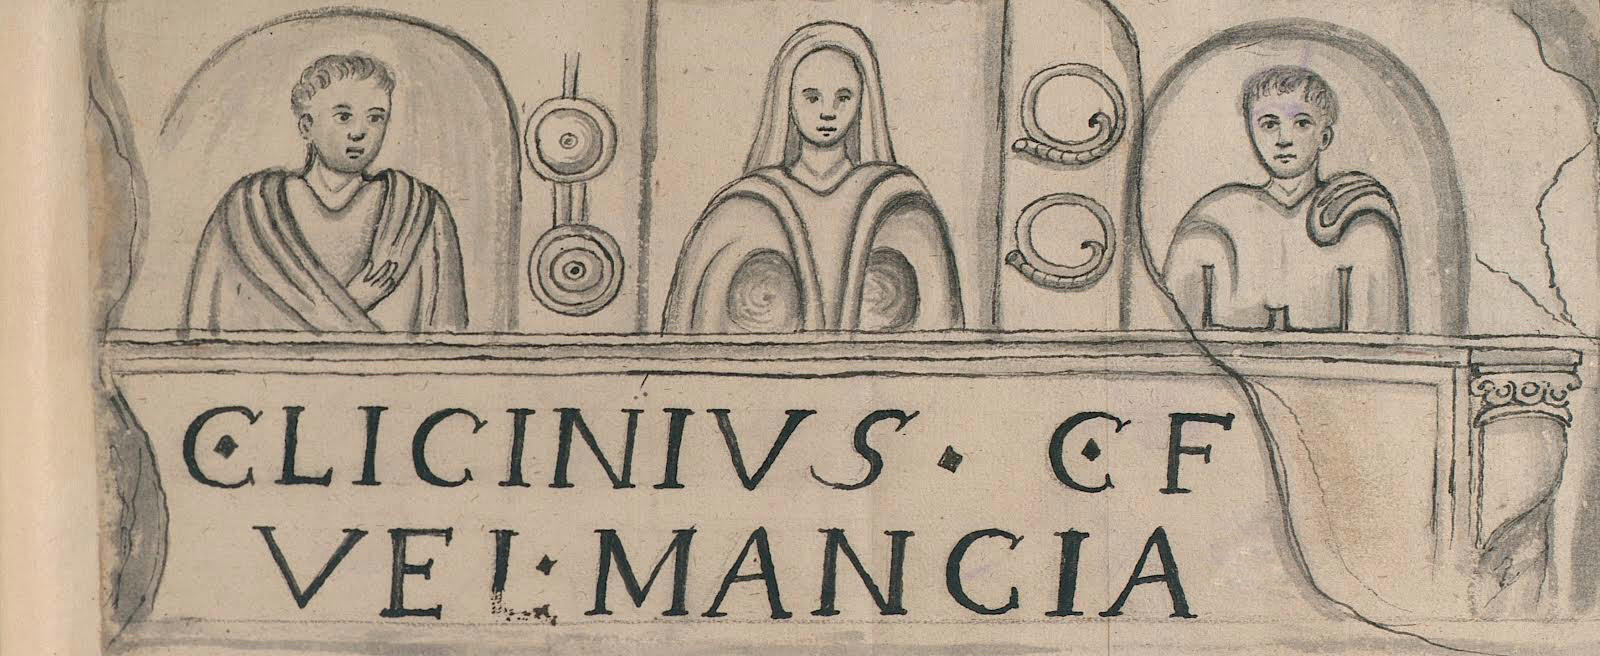 C·LICINIVS · C·F
VEL·MANCIA